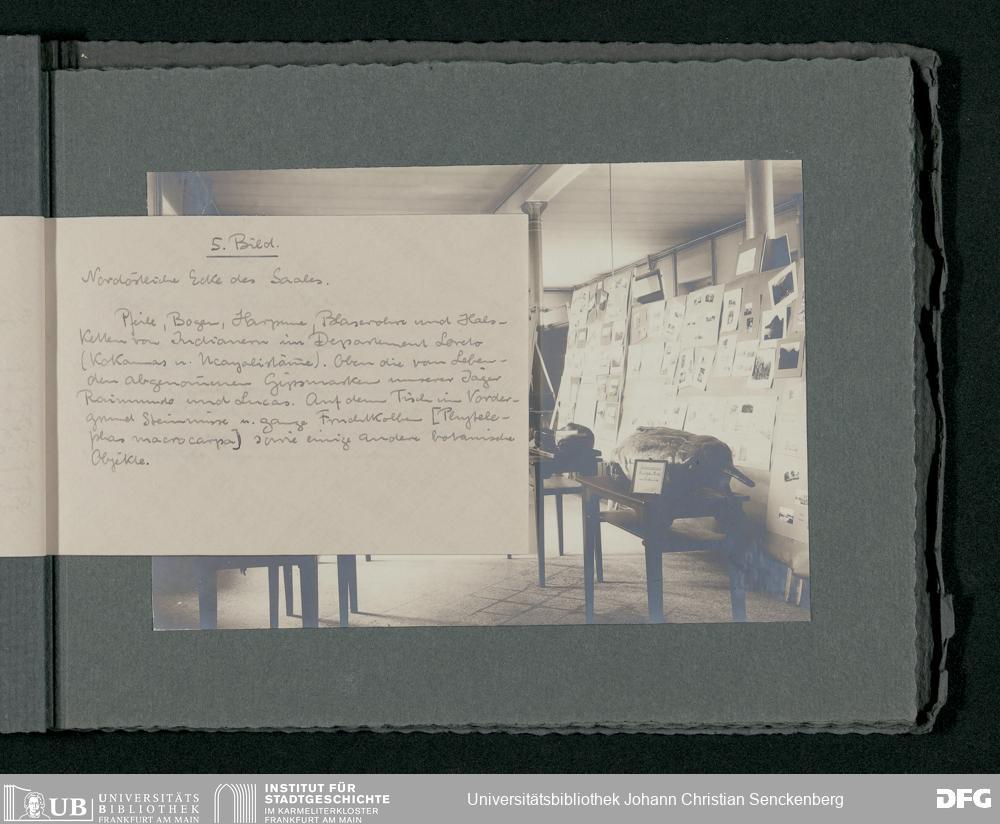 5. Bild.
Nordöstliche Ecke des Saales.
Pfeile, Bogen, Harpune, Blaserohre und Hals-
Ketten von Indianern im Departement Loreto
(Kokamas u. Ucayalistämme). Oben die vom Leben-
den abgenommenen Gipsmasken unserer Jäger
Raimundo und Lucas. Auf dem Tisch im Vorder-
grund Steinnüsse u. ganze Fruchtkolben [Phytele-
phas macrocarpa] sowie einige andere botanische
Objekte.
UB
UNIVERSITÄTS
BIBLIOTHEK
FRANKFURT AM MAIN
INSTITUT FÜR
STADTGESCHICHTE
IM KARMELITERKLOSTER
FRANKFURT AM MAIN
Universitätsbibliothek Johann Christian Senckenberg
DFG